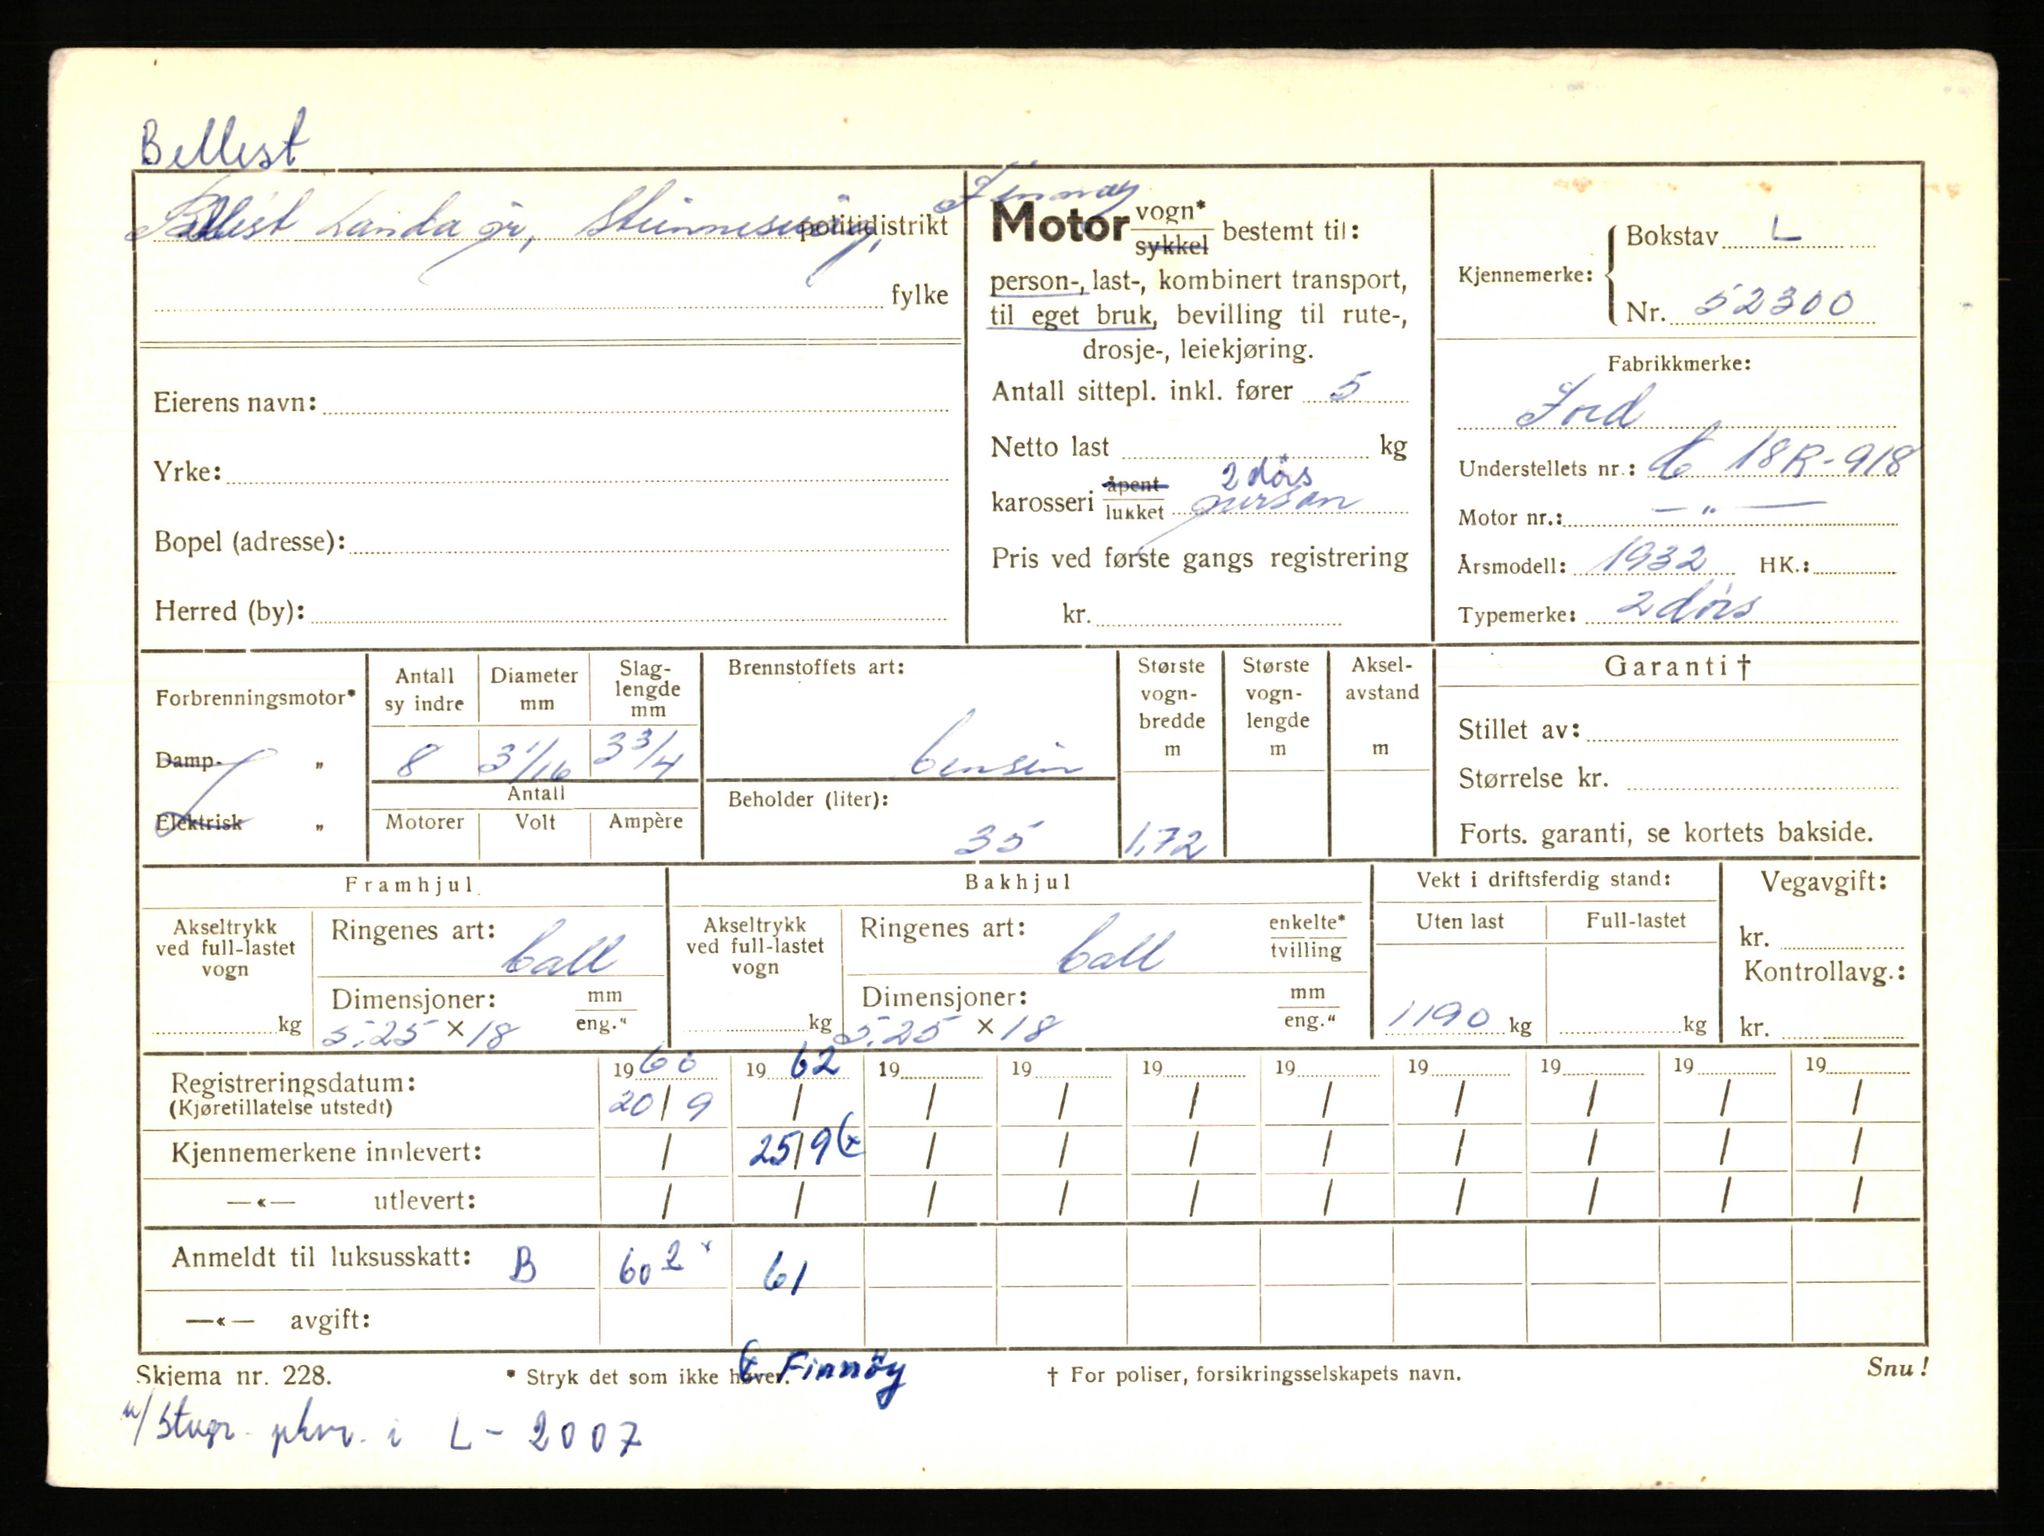 Bellest
Bellest Landa jr, politidistrikt
Finnøy
fylke
Eierens navn:
Yrke:
Bopel (adresse):
Herred (by):
Motor vogn* sykkel bestemt til:
person-, last-, kombinert transport,
til eget bruk, bevilling til rute-,
drosje-, leiekjøring.
Antall sittepl. inkl. fører 5
Netto last kg
2 dørs
karosseri åpent lukket person
Pris ved første gangs registrering
kr.
Kjennemerke:
Bokstav L
Nr. 52300
Fabrikkmerke:
Ford
Understellets nr.: C 18R-918
Motor nr.: — „ —
Årsmodell: 1932 HK.:
Typemerke: 2 dørs
Forbrenningsmotor*
Damp- „
Elektrisk „
Antall sy indre
Diameter mm
Slag-lengde mm
8 3 1/16 3 3/4
Antall
Motorer Volt Ampère
Brennstoffets art:
bensin
Beholder (liter):
35
Største vogn-bredde m
1,72
Største vogn-lengde m
Aksel-avstand m
Garanti †
Stillet av:
Størrelse kr.
Forts. garanti, se kortets bakside.
Framhjul
Akseltrykk ved full-lastet vogn
kg
Ringenes art: ball
Dimensjoner: mm eng."
5.25 × 18
Bakhjul
Akseltrykk ved full-lastet vogn
kg
Ringenes art: ball enkelte* tvilling
Dimensjoner: mm eng."
5.25 × 18
Vekt i driftsferdig stand:
Uten last Full-lastet
1190 kg kg
Vegavgift:
kr.
Kontrollavg.:
kr.
1960 1962 19 19 19 19 19 19 19 19
Registreringsdatum: 20/9 / / / / / / / / /
(Kjøretillatelse utstedt)
Kjennemerkene innlevert: / 25/9 (x / / / / / / / /
—«— utlevert: / / / / / / / / / /
Anmeldt til luksusskatt: B 60 2 x 61
—«— avgift:
Skjema nr. 228. * Stryk det som ikke høver. (x Finnöy † For poliser, forsikringsselskapets navn. Snu!
u/Stvgr. pkvr. i L - 2007